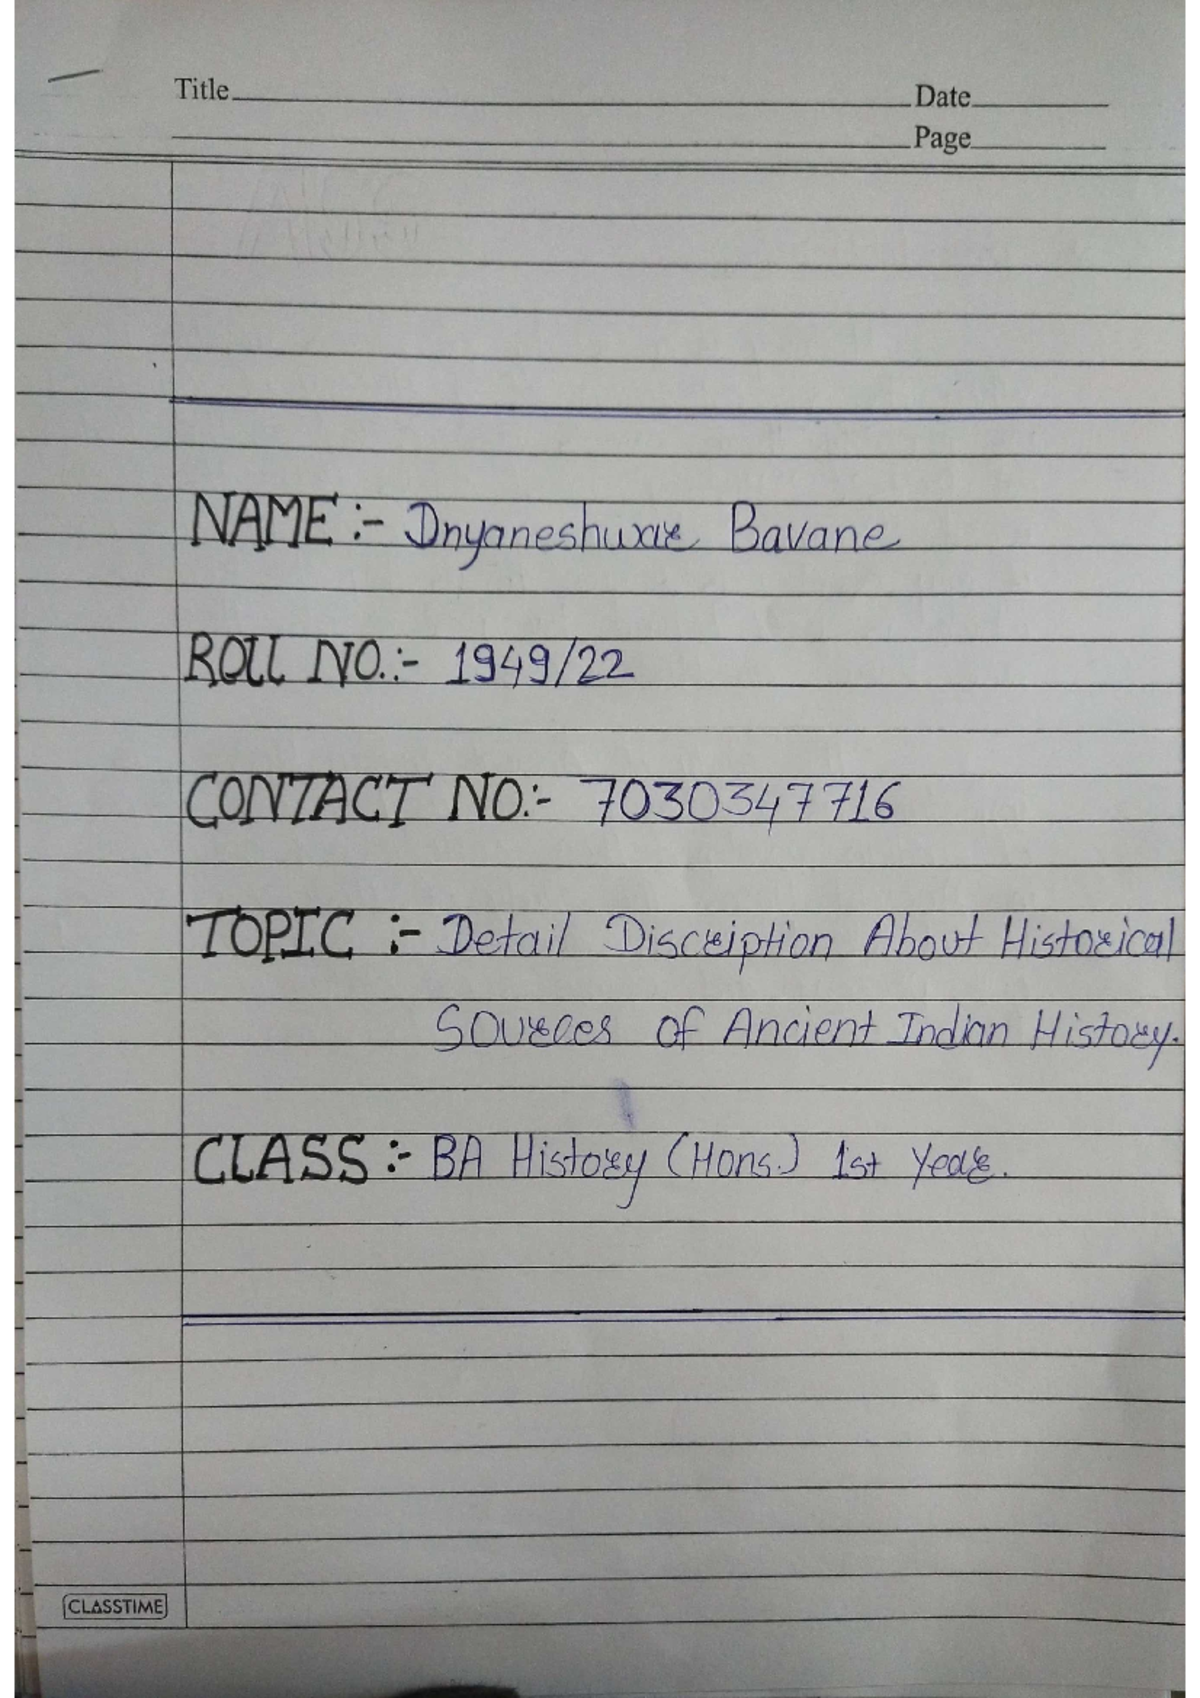 Title
Date
Page
NAME :- Dnyaneshwar Bavane
ROLL NO.:- 1949/22
CONTACT NO:- 7030347716
TOPIC :- Detail Discription About Historical
Sources of Ancient Indian History.
CLASS :- BA History (Hons.) 1st Year.
CLASSTIME